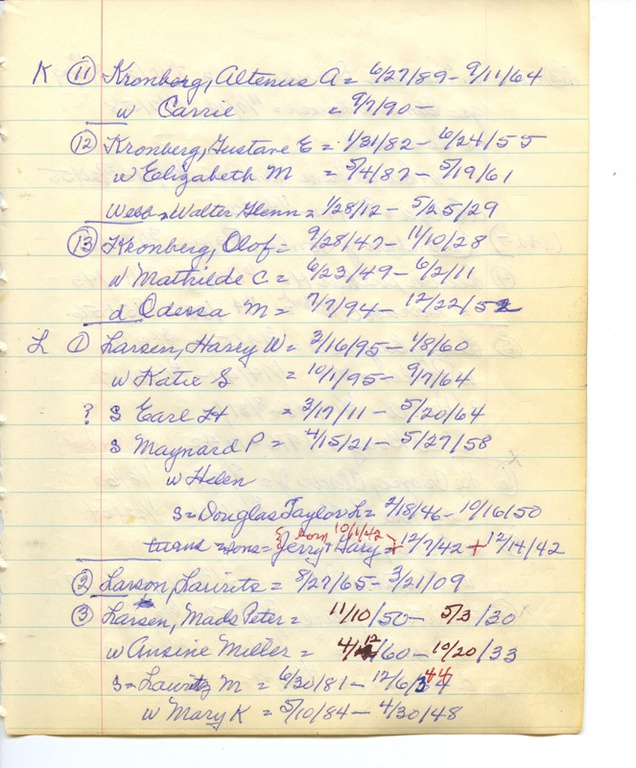 K (11) Kronberg, Altenus A = 6/27/89 - 9/11/64
w Carrie = 9/7/90 -
(12) Kronberg, Gustave E = 1/31/82 - 6/24/55
w Elizabeth M = 5/4/87 - 5/19/61
Webb = Walter Glenn = 1/28/12 - 5/25/29
(13) Kronberg, Olof = 9/28/47 - 11/10/28
w Mathilde C = 6/23/49 - 6/2/11
d Odessa M = 7/7/94 - 12/22/52
L (1) Larsen, Harry W = 3/16/95 - 1/8/60
w Katie S = 10/1/95 - 9/7/64
? s Earl H = 3/17/11 - 5/20/64
s Maynard P = 4/15/21 - 5/27/58
w Helen
s = Douglas Taylor L = 2/18/46 - 10/16/50
born 10/1/42
twins = sons = Jerry + Gary = + 12/7/42 + 12/14/42
(2) Larson, Laurits = 8/27/65 - 3/21/09
(3) Larsen, Mads Peter = 11/10/50 - 5/3/30
w Ansine Miller = 4/12/60 - 10/20/33
s = Lauritz M = 6/30/81 - 12/6/44
w Mary K = 5/10/84 - 4/30/48